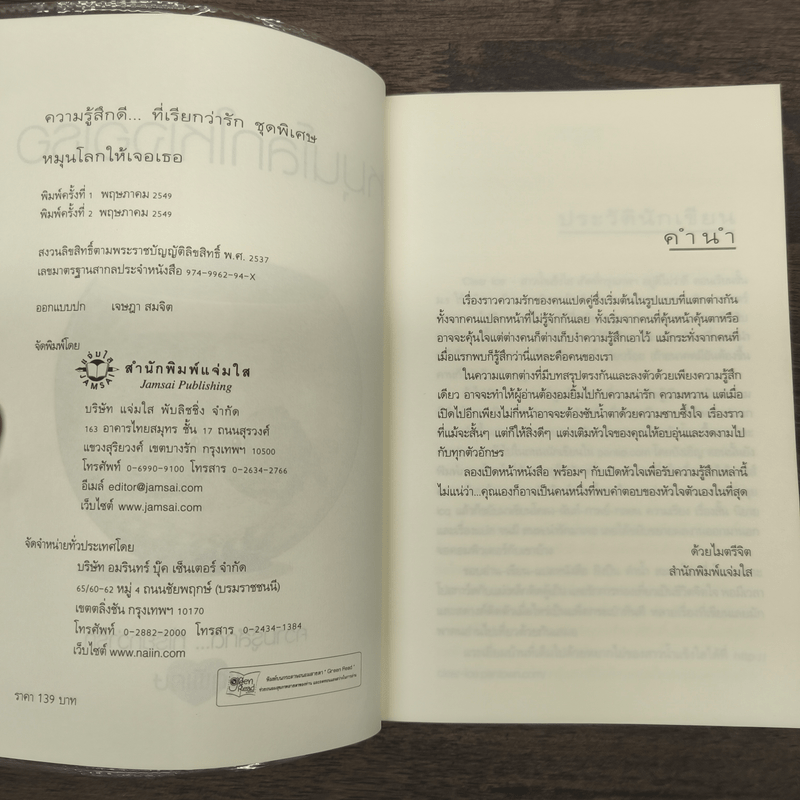 ความรู้สึกดี... ที่เรียกว่ารัก ชุดพิเศษ
หมุนโลกให้เจอเธอ
พิมพ์ครั้งที่ 1 พฤษภาคม 2549
พิมพ์ครั้งที่ 2 พฤษภาคม 2549
สงวนลิขสิทธิ์ตามพระราชบัญญัติลิขสิทธิ์ พ.ศ. 2537
เลขมาตรฐานสากลประจำหนังสือ 974-9962-94-X
ออกแบบปก เจษฎา สมจิต
จัดพิมพ์โดย
แจ่มใส
JAMSAI
สำนักพิมพ์แจ่มใส
Jamsai Publishing
บริษัท แจ่มใส พับลิชชิ่ง จำกัด
163 อาคารไทยสมุทร ชั้น 17 ถนนสุรวงศ์
แขวงสุริยวงศ์ เขตบางรัก กรุงเทพฯ 10500
โทรศัพท์ 0-6990-9100 โทรสาร 0-2634-2766
อีเมล์ editor@jamsai.com
เว็บไซต์ www.jamsai.com
จัดจำหน่ายทั่วประเทศโดย
บริษัท อมรินทร์ บุ๊ค เซ็นเตอร์ จำกัด
65/60-62 หมู่ 4 ถนนชัยพฤกษ์ (บรมราชชนนี)
เขตตลิ่งชัน กรุงเทพฯ 10170
โทรศัพท์ 0-2882-2000 โทรสาร 0-2434-1384
เว็บไซต์ www.naiin.com
Green Read
พิมพ์บนกระดาษถนอมสายตา "Green Read"
ราคา 139 บาท
คำนำ
เรื่องราวความรักของคนแปดคู่ซึ่งเริ่มต้นในรูปแบบที่แตกต่างกัน
ทั้งจากคนแปลกหน้าที่ไม่รู้จักกันเลย ทั้งเริ่มจากคนที่คุ้นหน้าคุ้นตาหรือ
อาจจะคุ้นใจแต่ต่างคนก็ต่างเก็บงำความรู้สึกเอาไว้ แม้กระทั่งจากคนที่
เมื่อแรกพบก็รู้สึกว่านี่แหละคือคนของเรา
ในความแตกต่างที่มีบทสรุปตรงกันและลงตัวด้วยเพียงความรู้สึก
เดียว อาจจะทำให้ผู้อ่านต้องอมยิ้มไปกับความน่ารัก ความหวาน แต่เมื่อ
เปิดไปอีกเพียงไม่กี่หน้าอาจจะต้องซับน้ำตาด้วยความซาบซึ้งใจ เรื่องราว
ที่แม้จะสั้นๆ แต่ก็ให้สิ่งดีๆ แต่งเติมหัวใจของคุณให้อบอุ่นและงดงามไป
กับทุกตัวอักษร
ลองเปิดหน้าหนังสือ พร้อมๆ กับเปิดหัวใจเพื่อรับความรู้สึกเหล่านี้
ไม่แน่ว่า...คุณเองก็อาจเป็นคนหนึ่งที่พบคำตอบของหัวใจตัวเองในที่สุด
ด้วยไมตรีจิต
สำนักพิมพ์แจ่มใส